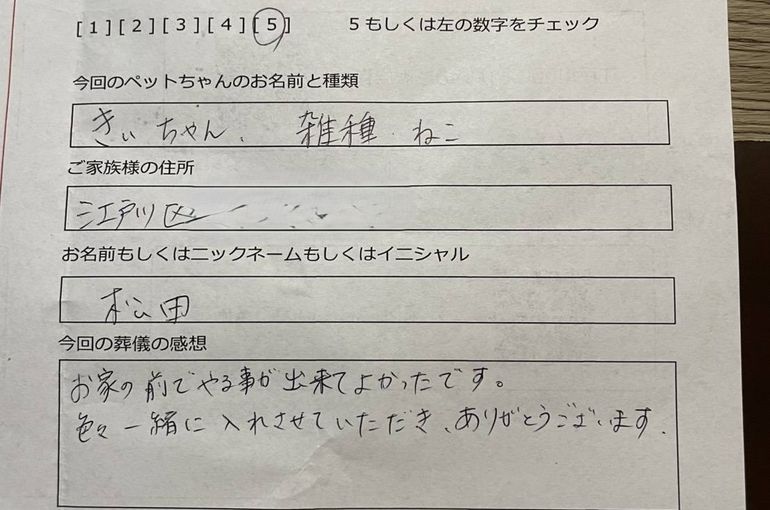 [1][2][3][4][5] 5もしくは左の数字をチェック
今回のペットちゃんのお名前と種類
きぃちゃん、 雑種 ねこ
ご家族様の住所
江戸川区
お名前もしくはニックネームもしくはイニシャル
松田
今回の葬儀の感想
お家の前でやる事が出来てよかったです。
色々一緒に入れさせていただき、ありがとうございます.